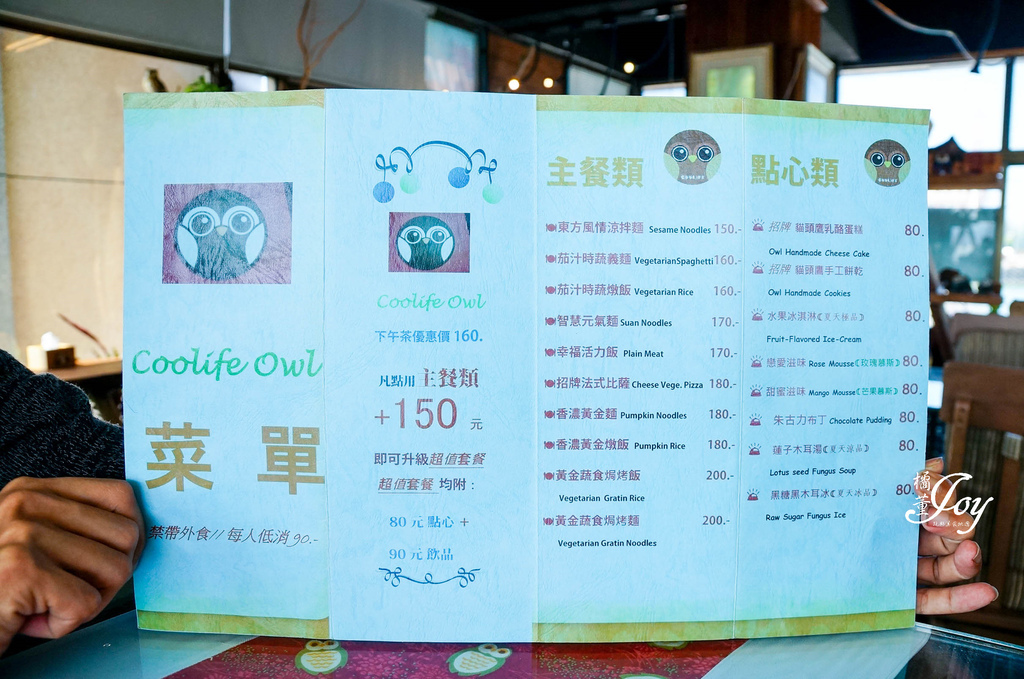 Coolife Owl
菜 單
禁帶外食//每人低消90.-
Coolife Owl
下午茶優惠價 160.
凡點用 主餐類
+150 元
即可升級超值套餐
超值套餐 均附:
80元 點心 +
90元 飲品
主餐類
東方風情涼拌麵 Sesame Noodles 150.-
茄汁時蔬義麵 VegetarianSpaghetti 160.-
茄汁時蔬燉飯 Vegetarian Rice 160.-
智慧元氣麵 Suan Noodles 170.-
幸福活力飯 Plain Meat 170.-
招牌法式比薩 Cheese Vege. Pizza 180.-
香濃黃金麵 Pumpkin Noodles 180.-
香濃黃金燉飯 Pumpkin Rice 180.-
黃金蔬食焗烤飯 200.-
Vegetarian Gratin Rice
黃金蔬食焗烤麵 200.-
Vegetarian Gratin Noodles
點心類
招牌 貓頭鷹乳酪蛋糕 80.
Owl Handmade Cheese Cake
招牌 貓頭鷹手工餅乾 80.
Owl Handmade Cookies
水果冰淇淋《夏天極品》 80.
Fruit-Flavored Ice-Cream
戀愛滋味 Rose Mousse《玫瑰慕斯》 80.
甜蜜滋味 Mango Mousse《芒果慕斯》 80.
朱古力布丁 Chocolate Pudding 80.
蓮子木耳湯《夏天涼品》 80.
Lotus seed Fungus Soup
黑糖黑木耳冰《夏天冰品》 80.
Raw Sugar Fungus Ice
橘童 Joy